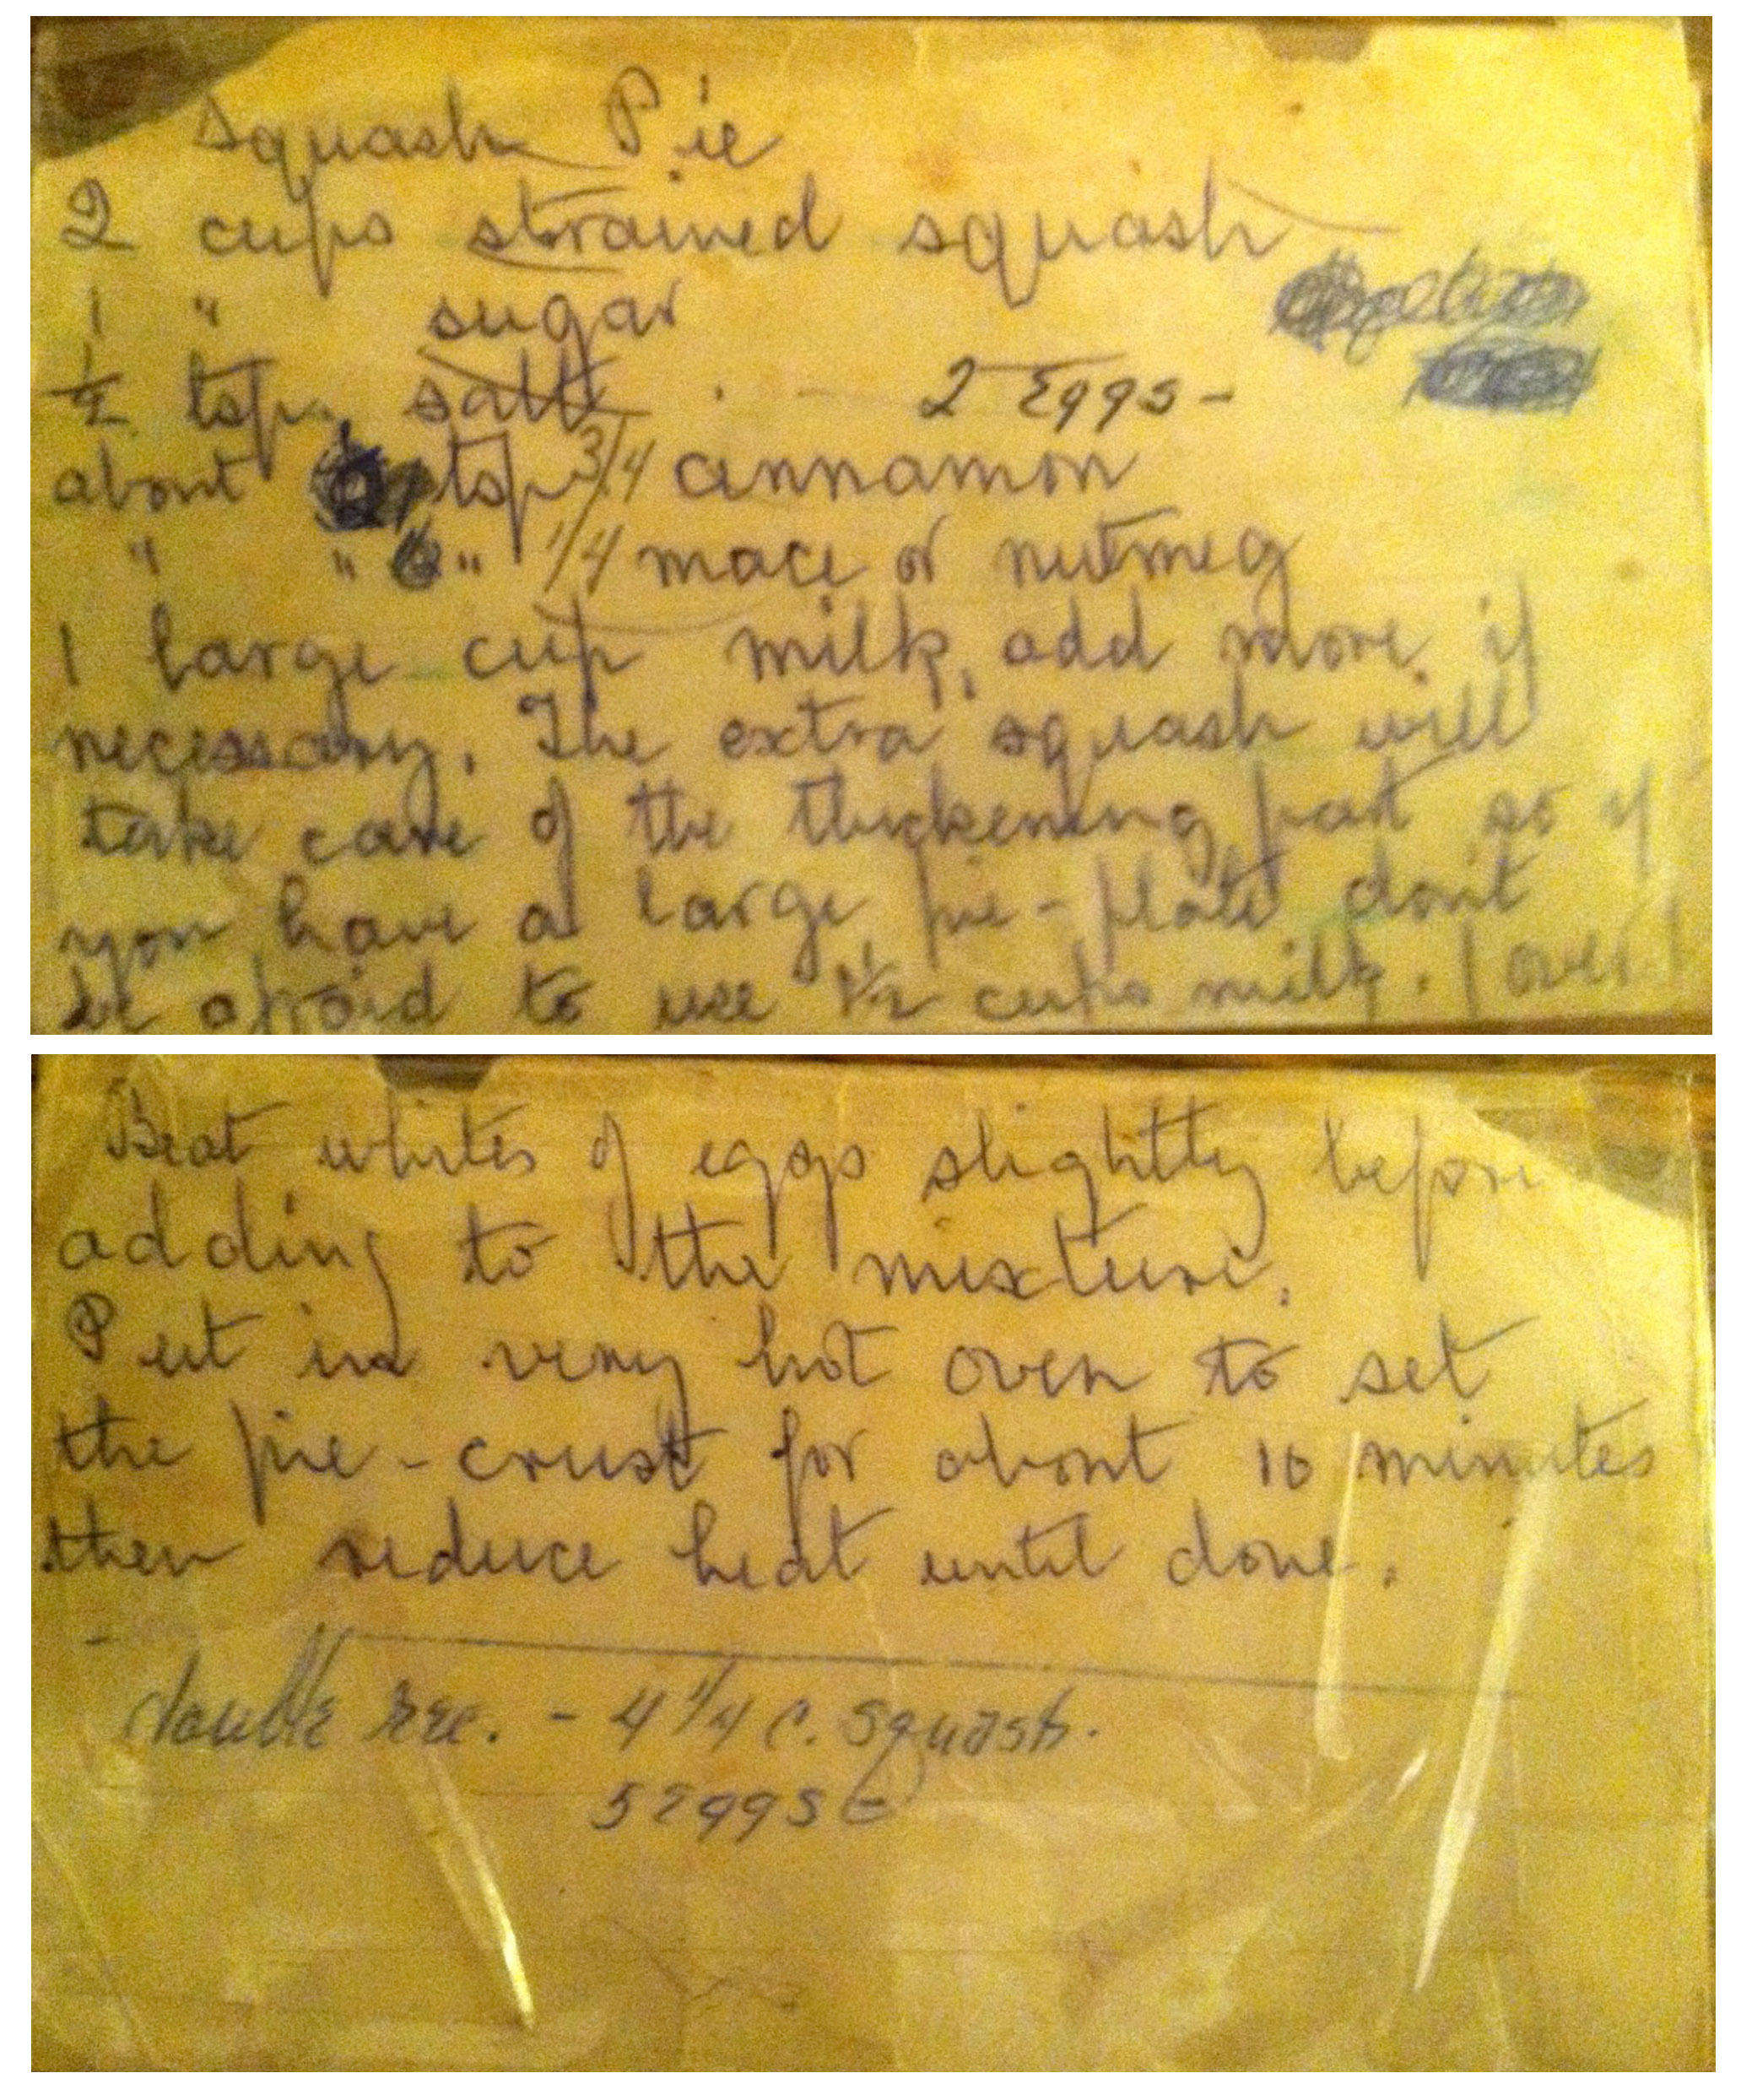 Squash Pie
2 cups strained squash
1 " sugar
1/2 tsp. salt 2 Eggs -
about tsp 3/4 cinnamon
" " " 1/4 mace or nutmeg
1 large cup milk, add more if
necessary. The extra squash will
take care of the thickening part so if
you have a large pie-plate don't
be afraid to use 1 1/2 cups milk. (over)
Beat whites of eggs slightly before
adding to the mixture.
Put in very hot oven to set
the pie-crust for about 10 minutes
then reduce heat until done.
double rec. - 4 1/4 c. squash.
5 eggs